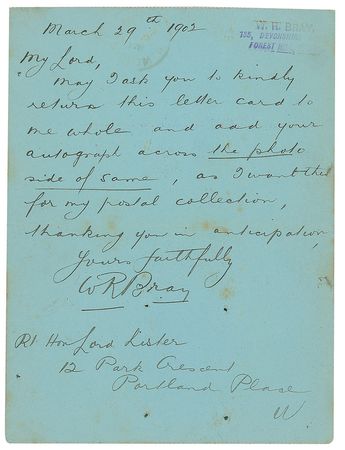 March 29th 1902
W. R. BRAY,
155, DEVONSHIRE
FOREST
My Lord,
May I ask you to kindly
return this letter card to
me whole and add your
autograph across the photo
side of same, as I want this
for my postal collection,
thanking you in anticipation,
Yours faithfully
W R Bray
Rt Hon Lord Lister
12 Park Crescent
Portland Place
W